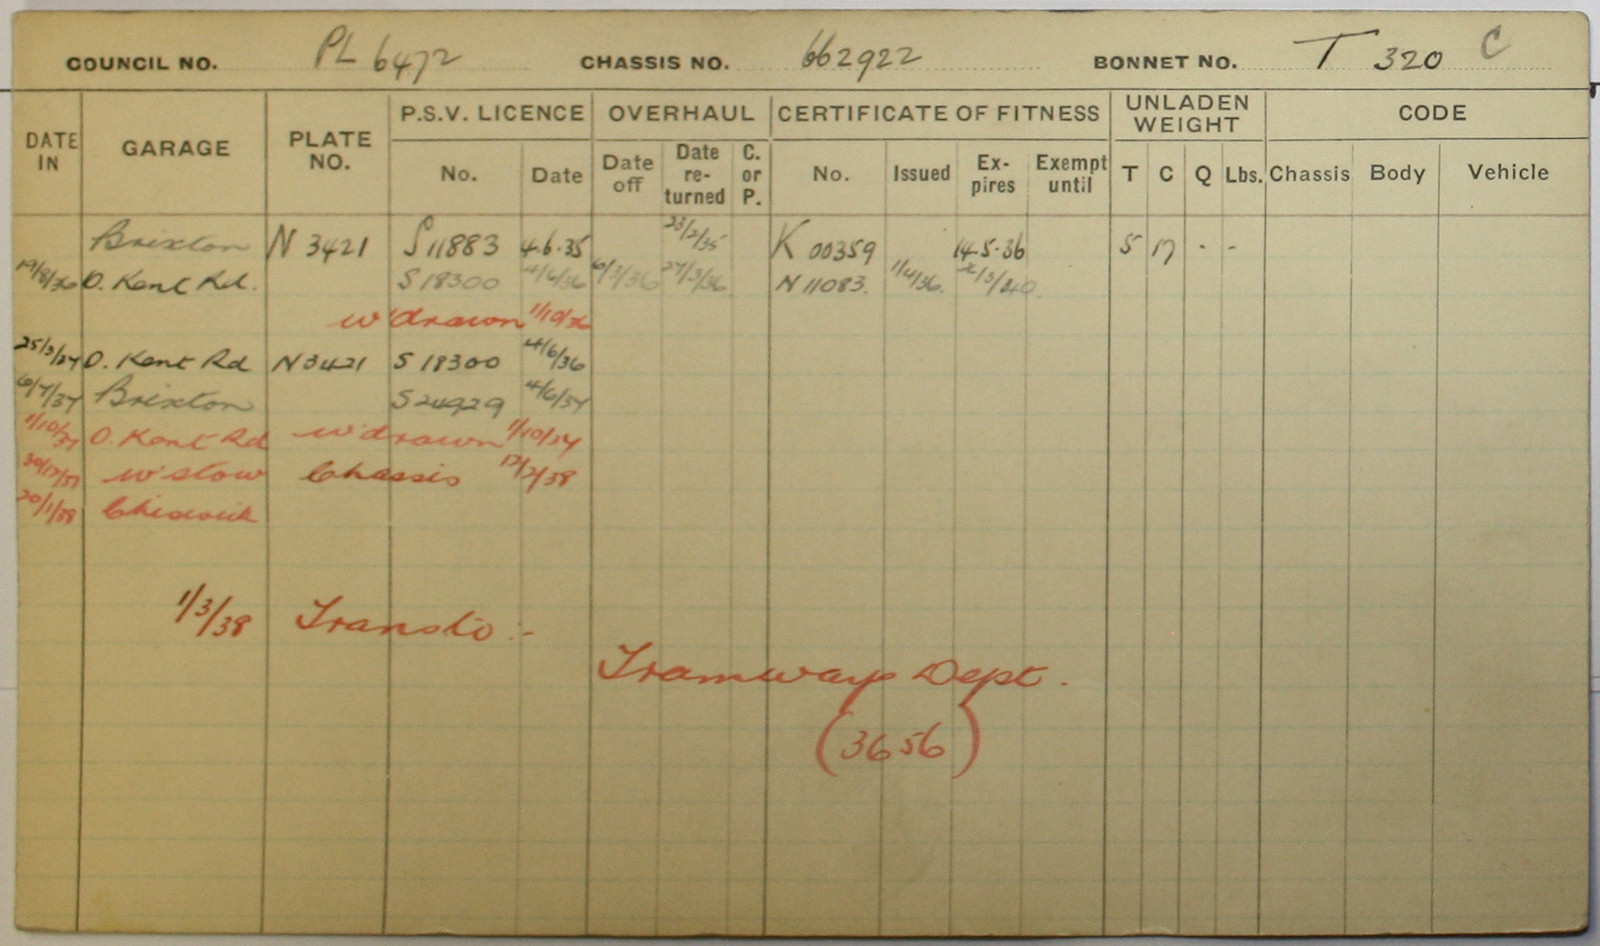 COUNCIL NO. PL 6472 CHASSIS NO. 662922 BONNET NO. T 320 C
DATE IN GARAGE PLATE NO. P.S.V. LICENCE OVERHAUL CERTIFICATE OF FITNESS UNLADEN WEIGHT CODE
No. Date Date off Date re-turned C. or P. No. Issued Ex-pires Exempt until T C Q Lbs. Chassis Body Vehicle
Brixton N 3421 S 11883 4.6.35 23/2/35 K 00359 14.5.36 5 17 - -
19/8/36 O. Kent Rd. S 18300 4/6/36 6/3/36 27/3/36 N 11083. 1/4/36. /3/40.
w'drawn 1/10/36
25/3/37 O. Kent Rd N 3421 S 18300 4/6/36
6/7/37 Brixton S 24929 4/6/37
1/10/37 O. Kent Rd w'drawn 1/10/37
30/12/37 w'stow Chassis 12/2/38
20/1/38 Chiswick
1/3/38 Trans to :-
Tramways Dept.
(3656)